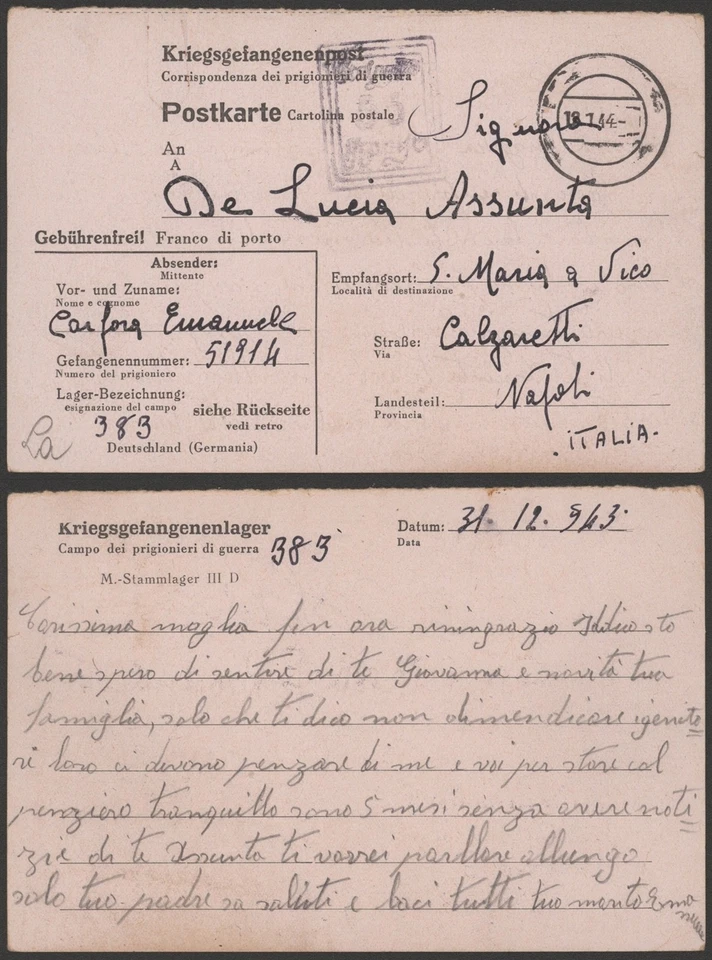 Kriegsgefangenenpost
Corrispondenza dei prigionieri di guerra
Postkarte Cartolina postale
Signora
18.1.44.-
An
A
De Lucia Assunta
Gebührenfrei! Franco di porto
Absender:
Mittente
Vor- und Zuname:
Nome e cognome
Carfora Emanuele
Gefangenennummer: 51914
Numero del prigioniero
Lager-Bezeichnung:
esignazione del campo
siehe Rückseite
vedi retro
383
Deutschland (Germania)
La
Empfangsort: S. Maria a Vico
Località di destinazione
Straße: Calzaretti
Via
Landesteil: Napoli
Provincia
. ITALIA-
Kriegsgefangenenlager
Campo dei prigionieri di guerra 383
M.-Stammlager III D
Datum: 31. 12. 943.
Data
Carissima moglia fin ora riningrazio Iddio sto
bene spero di sentire di te Giovanna e novità tua
famiglia, solo che ti dico non dimendicare igenito
ri loro ci devono penzare di me e voi per store col
penziero tranquillo sono 5 mesi senza avere noti
zie di te Assunta ti vorrei parllare allungo
solo tuo padre sa saluti e baci tutti tuo marito Ema